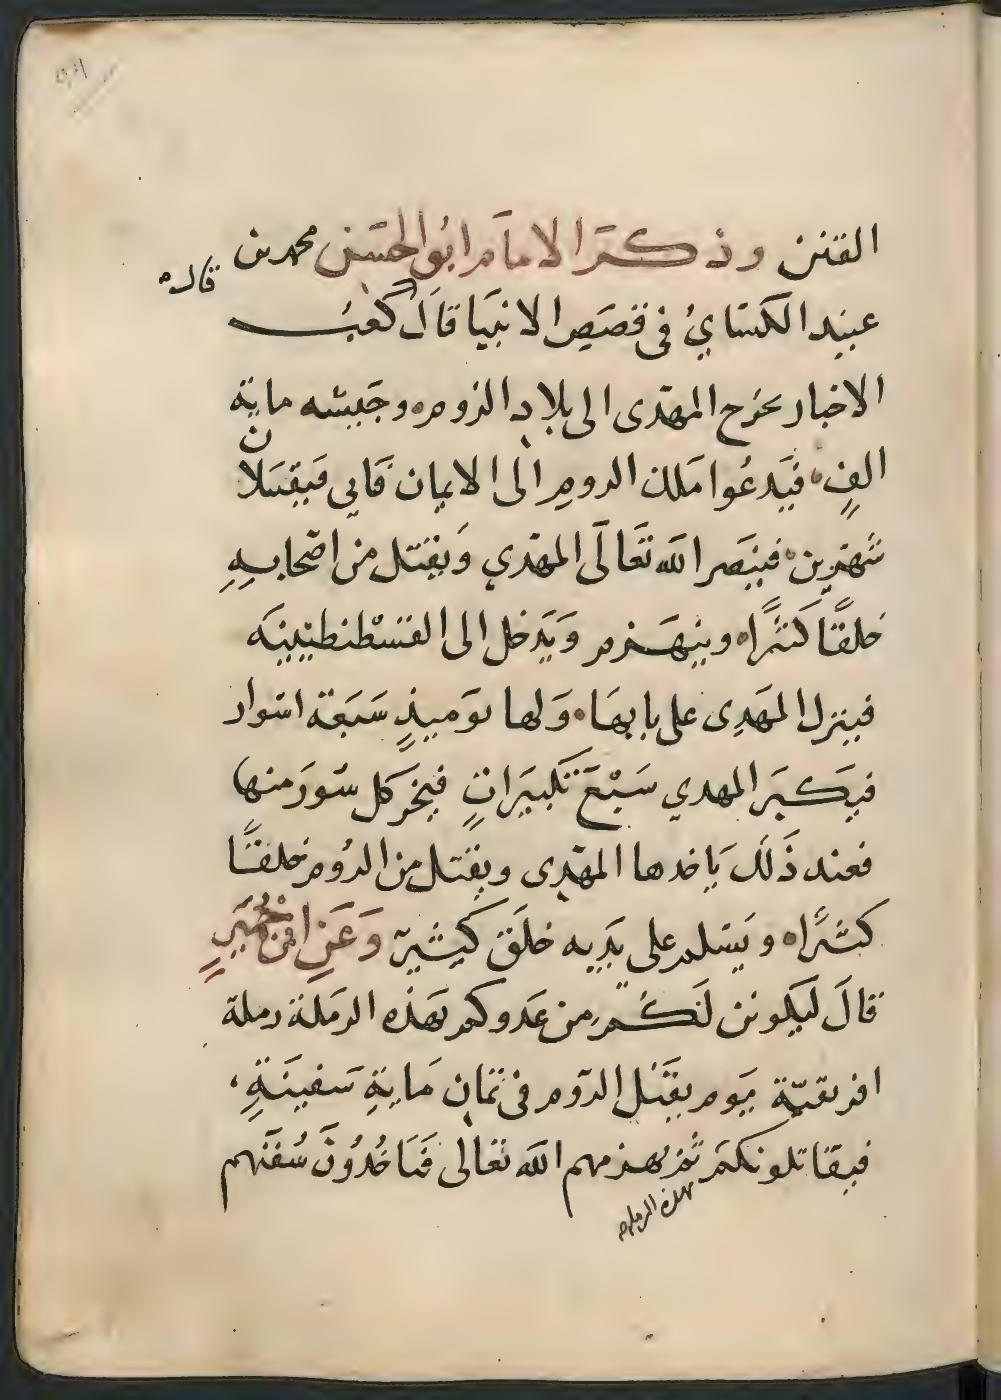 الفتن وذكر الامام ابو الحسن محمد بن
قال
عبيد الكسَايُ فى قصَصِ الانبيَا قالَ كعبُ
الاخبار يخرج المهدى الى بلاد الروم وجيشه ماية
الفٍ فيَدعُوا ملك الروم الى الايمان فَابى فيقتتلان
شهرين فينصر الله تعَالَى المهدي ويقتل من اصحابهِ
خلقًا كثيرًا وينهزم وَيَدخل الى القسْطنطينيه
فينزل المهَدِى على بابهَا وَلها يوميذٍ سَبعَة اسوار
فيكبرَ المهدي سَبْعَ تكبيرَاتٍ فيخر كل سُورَ منها
فعند ذَلك يَاخدها المهدى ويقتل من الرُوم خلقًا
كثيرًا ويَسلم على يَدَيه خلَق كثير وَعَنِ ابن حميَرٍ
قالَ ليَكونن لَكُم من عَدوكم بهَذه الرمَلة رملة
افريقيّة يَوم يقتل الرّوم فى ثمان مَايةِ سَفينَةٍ
فيقاتلونكم ثم يهزمهم الله تعَالى فتَاخُدُونَ سُفنَهم
بهذه الرمله